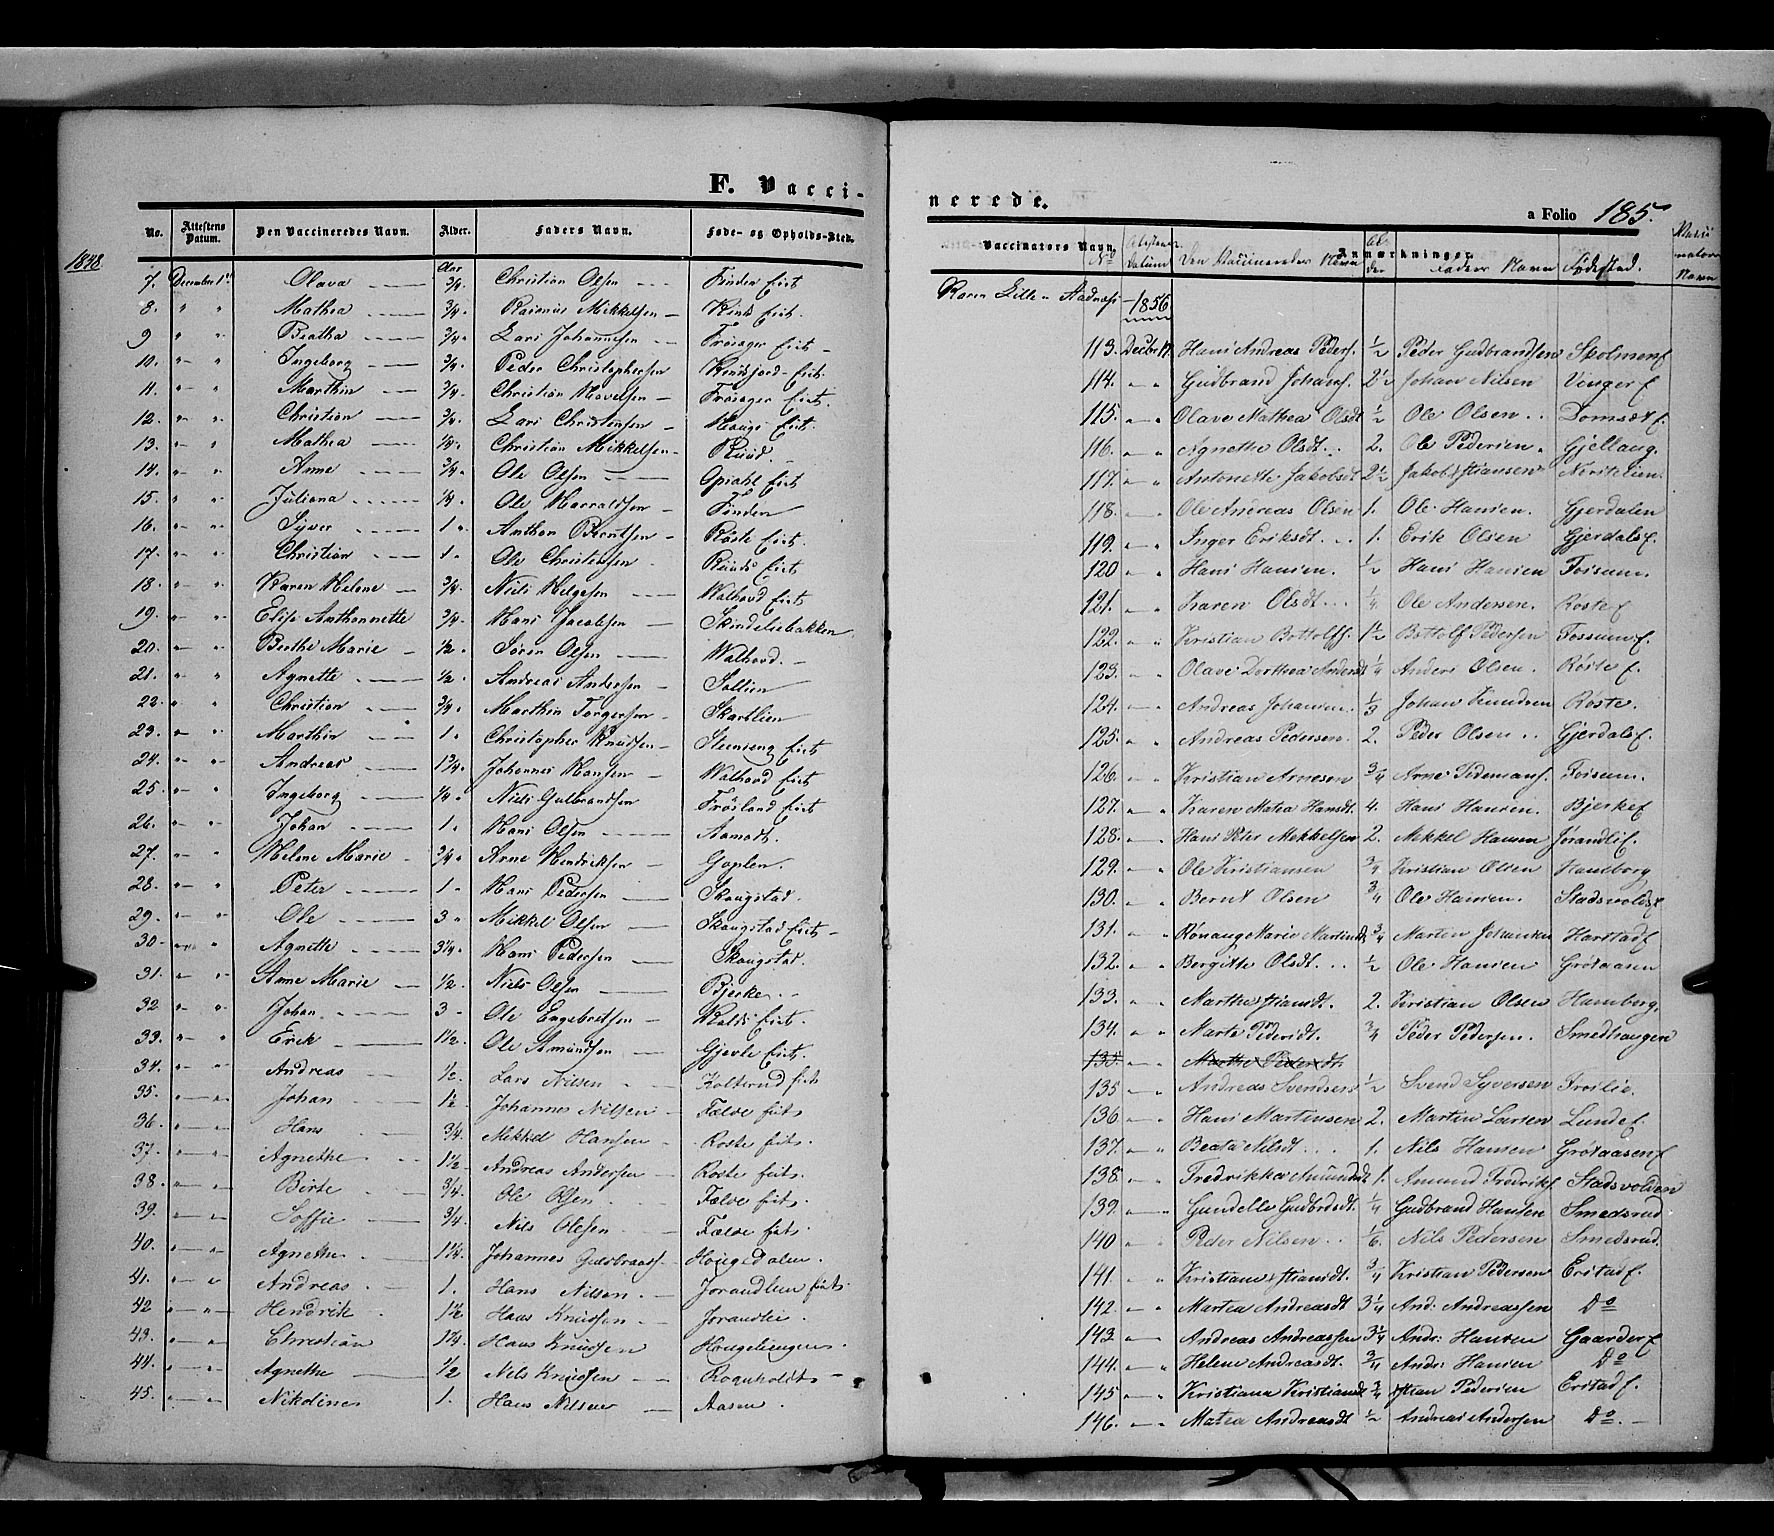 F. Vacci-
No. Attestens Datum. Den Vaccineredes Navn. Alder. Faders Navn. Føde- og Opholds-Sted.
1848
Aar
7. December 1st Olava 3/4 Christian Olsen Finden Eiet
8. " " Mathea 3/4. Rasmus Mikkelsen Eiet.
9 " " Beatha 3/4. Lars Johannesen Eiet
10. " " Ingeborg 3/4. Peder Christophersen Eiet.
11. " " Marthin 3/4. Christian Eiet.
12. " " Christian 3/4. Lars Christensen Haugs Eiet.
13. " " Mathea 1/4. Christian Mikkelsen Ruud
14. " " Anne 3/4. Ole Olsen Opsahl Eiet
15. " " Juliana 1/4. Ole Harraldsen Finden
16. " " Syver 1. Anthon Berntsen Røste Eiet.
17. " " Christian 1. Ole Christensen Ruuds Eiet
18. " " Karen Helene 3/4. Niels Helgesen Walhovd Eiet
19. " " Elise Anthonnette 3/4. Hans Jacobsen Skindeliebakken
20. " " Berthe Marie 1/2. Søren Olsen Walhovd.
21. " " Agnette 1/2. Andreas Andersen Sollien
22. " " Christian 3/4. Marthin Torgersen Skartlien
23. " " Marthin 1. Christopher Knudsen Steenseng Eiet
24. " " Andreas 1 3/4. Johannes Hansen Walhovd Eiet
25. " " Ingeborg 1/4. Niels Gulbrandsen Frøsland Eiet
26. " " Johan 1. Hans Olsen Aamodt.
27. " " Helene Marie 3/4. Arne Hendriksen Goplen.
28. " " Peter 1 Hans Pedersen Skougstad.
29. " " Ole 3 Mikkel Olsen Skougstad Eiet
30. " " Agnethe 3 1/4. Hans Pedersen Skougstad.
31. " " Anne Marie 1/2. Niels Olsen Bjerke.
32 " " Johan 3 Ole Engebretsen Eiet.
33. " " Erik 1 1/2. Ole Amundsen Gjevle Eiet.
34. " " Andreas 1/2. Lars Nilsen Kolterud Eiet
35. " " Johan 1 1/2. Johannes Nilsen Fælve Eiet
36. " " Hans 3/4. Mikkel Hansen Roste Eiet.
37. " " Agnethe 1 1/2 Andreas Andersen Roste Eiet.
38. " " Birte 3/4. Ole Olsen Fælve Eiet
39. " " Soffie 3/4. Nils Olesen Fælve Eiet
40. " " Agnethe 1 1/4. Johannes Hougsdalen
41. " " Andreas 1. Hans Nilsen Jorandlien Eiet
42 " " Hendrik 1 1/2 Hans Knudsen Jorandlie.
43. " " Christian 1 1/4. Hans Knudsen
44. " " Agnethe 1/2 Nils Knudsen
45. " " Nikoline 1. Hans Nilsen Aasen.
nerede.
a Folio 185.
Vaccinators Navn. Anmærkninger.
No Attestens Datum Den Vaccineredes Navn Alder Faders Navn Fødestad. Navn
Karen Lille Aadnæs
1856
113. Decbr 17. Hans Andreas Peders. 1/2 Peder Gudbrandsen Skolmen E
114. " " Gudbrand Johans. 2 1/2 Johan Nilsen Vinger E
115. " " Olave Mathea Olsdt 1/2 Ole Olsen Domsæt E.
116. " " Agnethe Olsdt. 2. Ole Pedersen Gjellaug.
117. " " Antonette Jakobsdt 2 1/2 Jakob Kstiansen Nerstelien
118. " " Ole Andreas Olsen 1. Ole Hansen. Gjerdalen
119. " " Inger Eriksdt. 1. Erik Olsen Gjerdals E.
120 " " Hans Hansen. 1/2 Hans Hansen Fossum.
121. " " Karen Olsdt. 1/4 Ole Andersen. Røste E
122. " " Kristian Bottolfs. 1 1/2 Bottolf Pedersen Fossum E.
123. " " Olave Dorthea Andersdt 1/4 Anders Olsen. Røste E.
124. " " Andreas Johansen. 1/3 Johan Knudsen Roste.
125. " " Andreas Pedersen. 2. Peder Olsen Gjerdals E.
126. " " Kristian Arnesen 3/4 Arne Fossum.
127. " " Karen Matea Hansdt. 4. Hans Hansen. Bjerke E
128. " " Hans Peter Mikkelsen 2. Mikkel Hansen Jørandli E.
129. " " Ole Kristiansen 3/4 Kristian Olsen Hamborg
130. " " Bernt Olsen 3/4 Ole Hansen. Stadsvolds E
131. " " Rönaug Marie Martinsdt 3/4 Marten Johansen Harstad E
132. " " Bergitte Olsdt. 1/2 Ole Hansen Grøtaasen
133. " " Marthe Kstiansdt. 2. Kristian Olsen Hamborg.
134. " " Marte Pedersdt. 3/4 Peder Pedersen. Smedhaugen
135. " " Marthe Pedersdt.
135 " " Andreas Svendsen 1/2 Svend Syversen Froilie.
136 " " Hans Martinsen 2. Martin Larsen Lunde E.
137. " " Beata Nilsdt. 1. Nils Hansen Grøtaasen E
138. " " Fredrikke Amundsdt 1. Amund Fredriks. Stadsvolden
139. " " Gundelle Gudbrdsdt. 1/4 Gudbrand Hansen Smedsrud
140 " " Peder Nilsen 1/6. Nils Pedersen Smedsrud.
141. " " Kristiane Kstiansdt. 3/4 Kristian Pedersen Eristad E.
142. " " Martea Andreasdt 3 1/4 And: Andreassen Do
143. " " Andreas Andreassen 3 1/4 Andr: Hansen Gaarder E
144. " " Helene Andreasdt. 3/4 Andr: Hansen Do
145 " " Kristiana Kristiansdt 3/4 Kstian Pedersen Eristad E.
146. " " Matea Andreasdt 1/2 Andreas Andersen Do